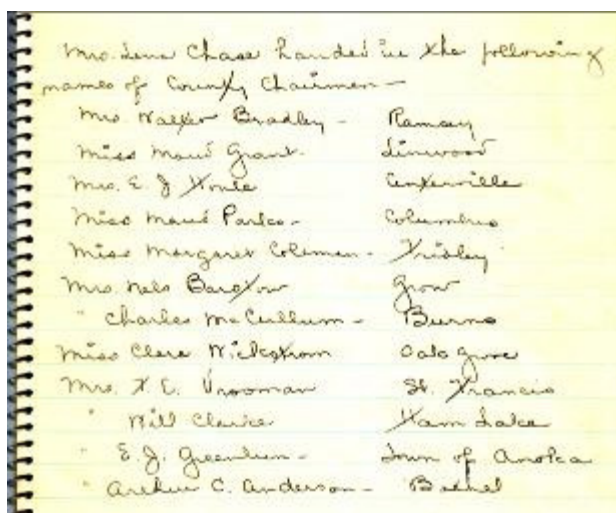 Mrs. Lena Chase handed in the following
names of County Chairmen—
Mrs. Walter Bradley - Ramsey
Miss Maud Grant. Linwood
Mrs. E. J. Centerville
Miss Maud Parks - Columbus
Miss Margaret Coleman - Fridley
Mrs. Nels Barstow Grow
" Charles McCullum - Burns
Miss Clara Wickstrom Oak Grove
Mrs. F. E. Vrooman St. Francis
" Will Clarke Ham Lake
" E. J. Greenlun - Town of Anoka
" Arthur C. Anderson - Bethel